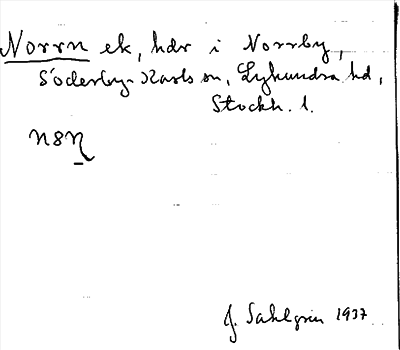 Norrn ek, hdr i Norrby,
Söderby-Karls sn, Lyhundra hd,
Stockh. l.
n8ɳ
J. Sahlgren 1937